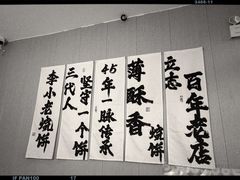 百年老店
立志
薄酥香
烧饼
45年一脉传承
坚守一个饼
三代人
李小老烧饼
IF PAN100
17